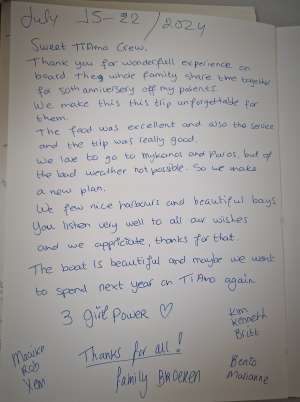 July 15-22 / 2024
Sweet TiAmo Crew.
Thank you for wonderfull experience on
board the whole family share time together
for 50th anniversery off my parents.
We make this this trip unforgettable for
them.
The food was excellent and also the service
and the trip was really good.
We love to go to Mykonos and Paros, but of
the bad weather not possible. So we make
a new plan.
We few nice harbours and beautiful bays
You listen very well to all our wishes
and we appriciate, thanks for that.
The boat is beautiful and maybe we want
to spend next year on TiAmo again
3 girl power ♡
Kim
Kenneth
Britt
Maaike
Rob
Xem
Thanks for all!
family BROEREN
Benco
Marianne